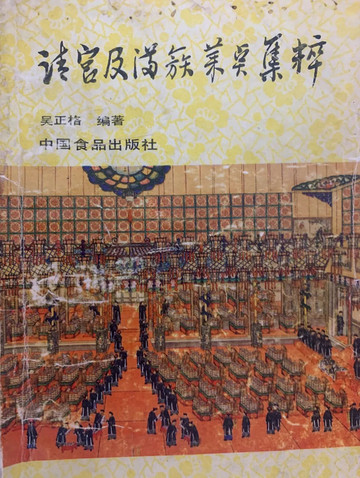 清宫及满族菜点集粹
吴正格 编著
中国食品出版社